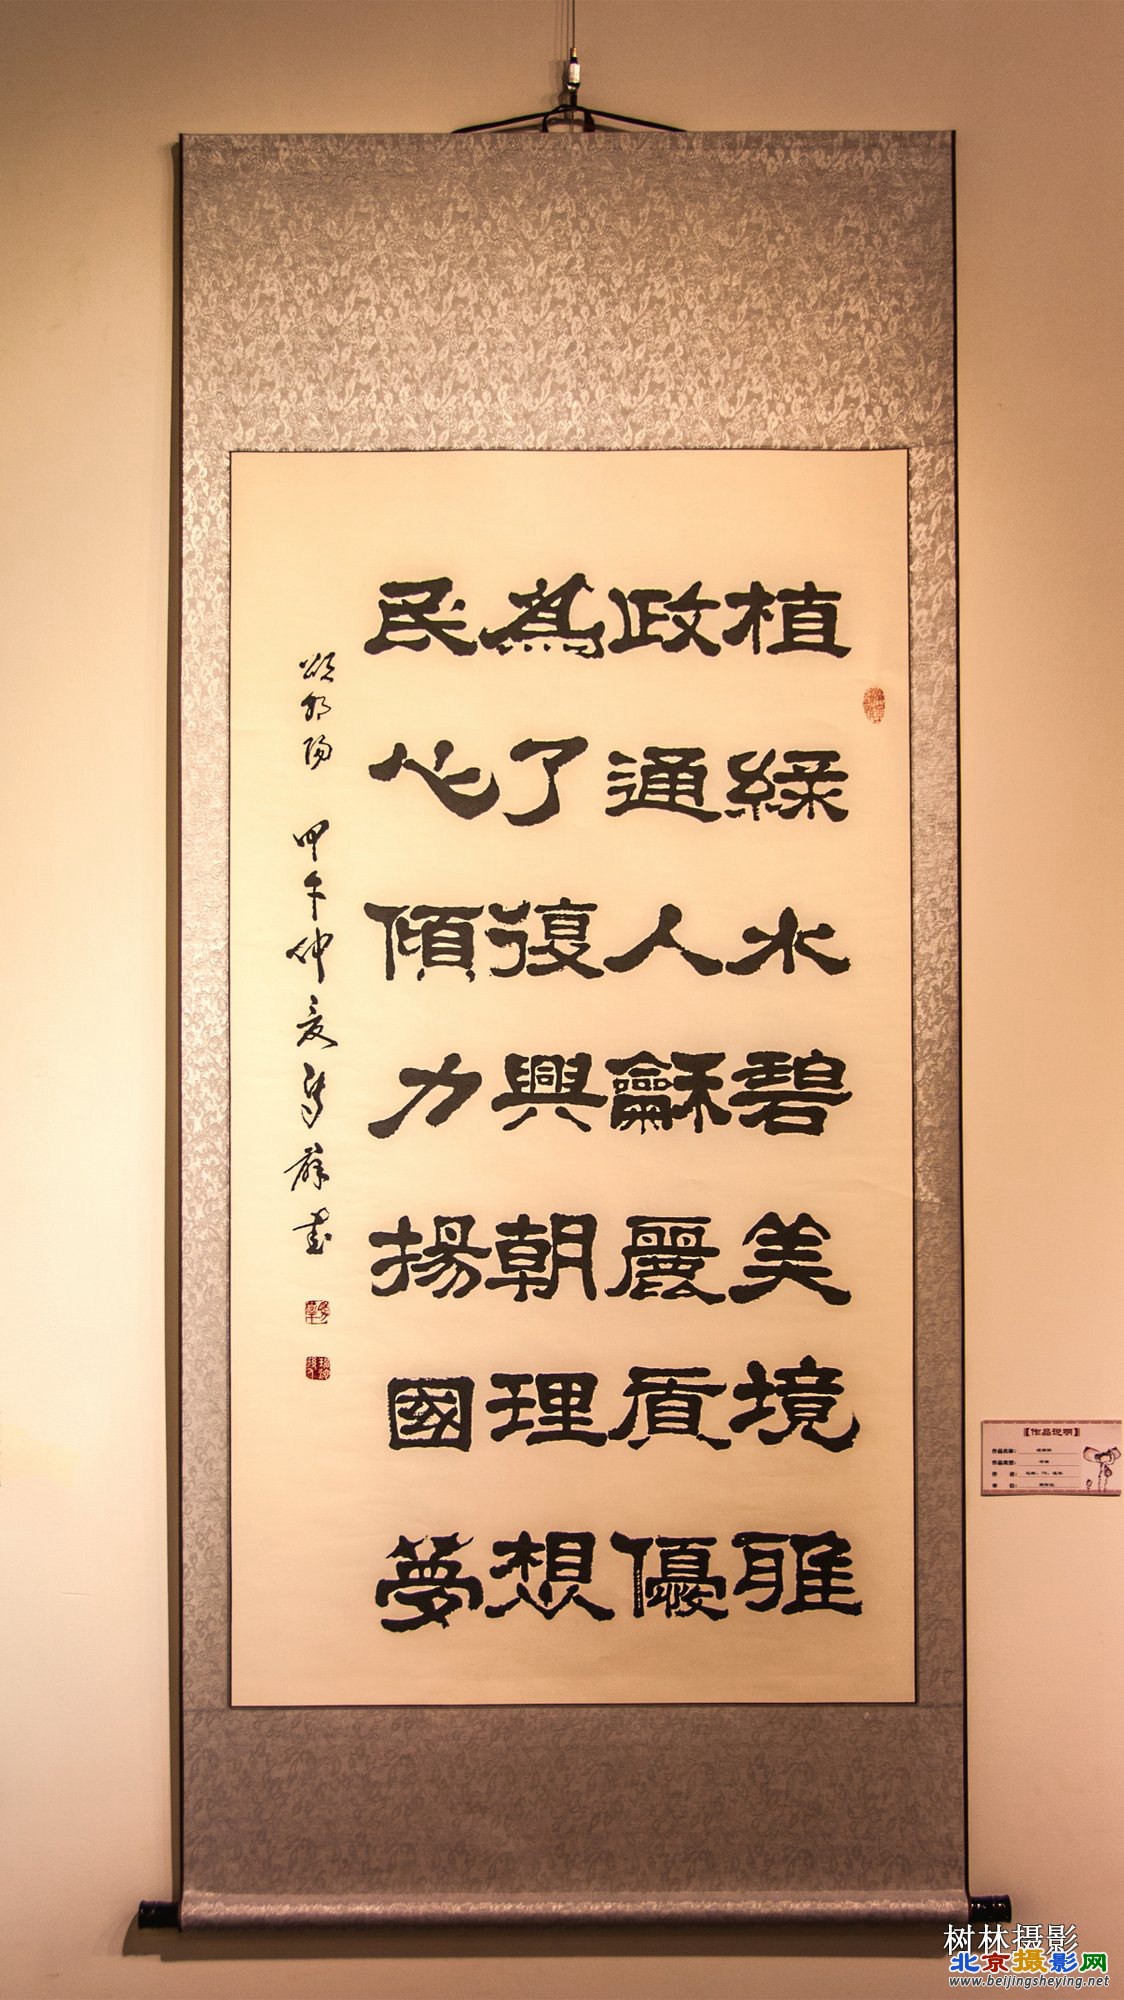 植綠水碧美境雅
政通人龢麗質優
為了復興朝理想
民心傾力揚國夢
頌朝陽 甲午仲夏
書
【作品说明】
树林摄影
北京摄影网
www.beijingsheying.net